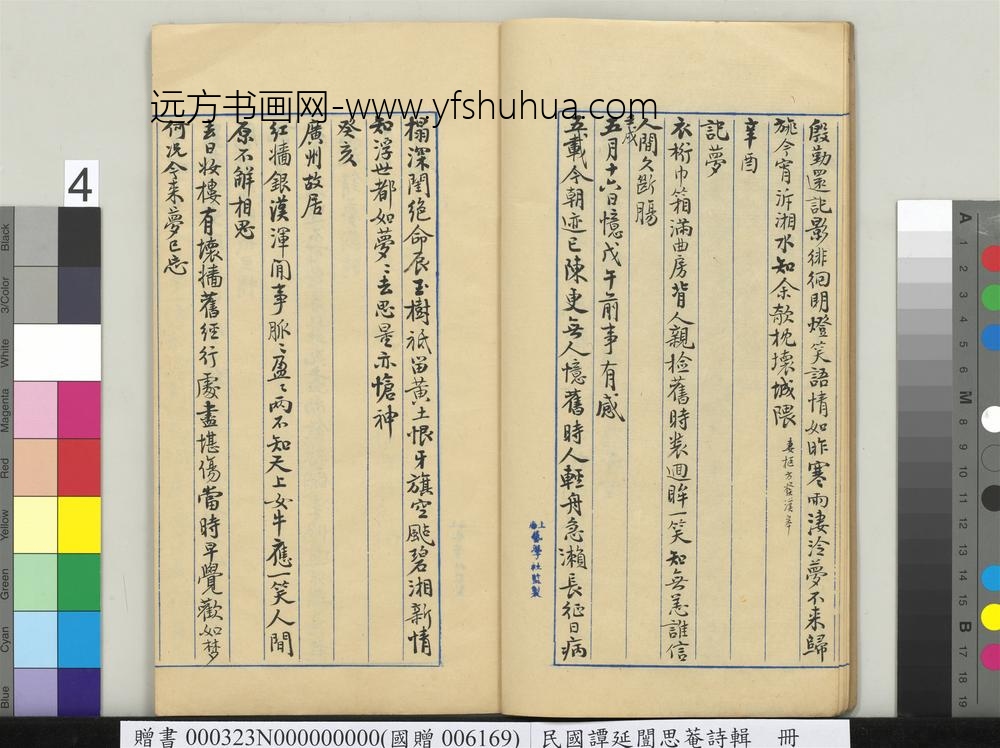 远方书画网-www.yfshuhua.com
殷勤還記影徘徊明燈笑語情如昨寒雨淒泠夢不来歸
旐今宵泝湘水知余欹枕壊城隈
辛酉
記夢
衣桁巾箱滿曲房背人親檢舊時裝迴眸一笑知無恙誰信
人閒久斷腸
五月十六日憶戊午前事有感
五載今朝迹已陳更無人憶舊時人輕舟急瀨長征日病
榻深閨絕命辰玉樹祗留黃土恨牙旗空颭碧湘新情
知浮世都如夢〻去思量亦愴神
癸亥
廣州故居
紅牆銀漢渾閒事脈〻盈〻兩不知天上女牛應一笑人間
原不解相思
去日妝樓有壞牆舊經行處盡堪傷當時早覺歡如梦
何况今来夢已忘
上海藝學社監製
4
Black
3/Color
White
Magenta
Red
Yellow
Green
Cyan
Blue
A
1
2
3
4
5
6
M
8
9
10
11
12
13
14
15
B
17
18
19
贈書 000323N000000000(國贈 006169)
民國譚延闓思菴詩輯 冊